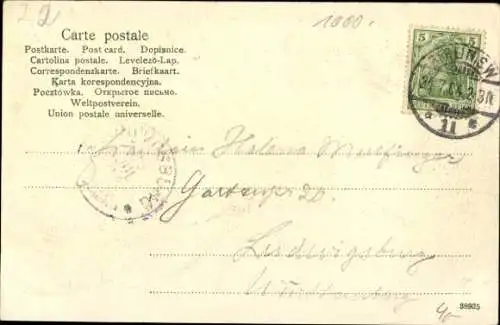 22
1000.-
Carte postale
Postkarte. Post card. Dopisnice.
Cartolina postale. Levelező-Lap.
Correspondenzkarte. Briefkaart.
Karta korespondencyjna.
Pocztówka. Открытое письмо.
Weltpostverein.
Union postale universelle.
5 5
11
Fräulein Helena
Ludwigsburg
Württemberg
38925